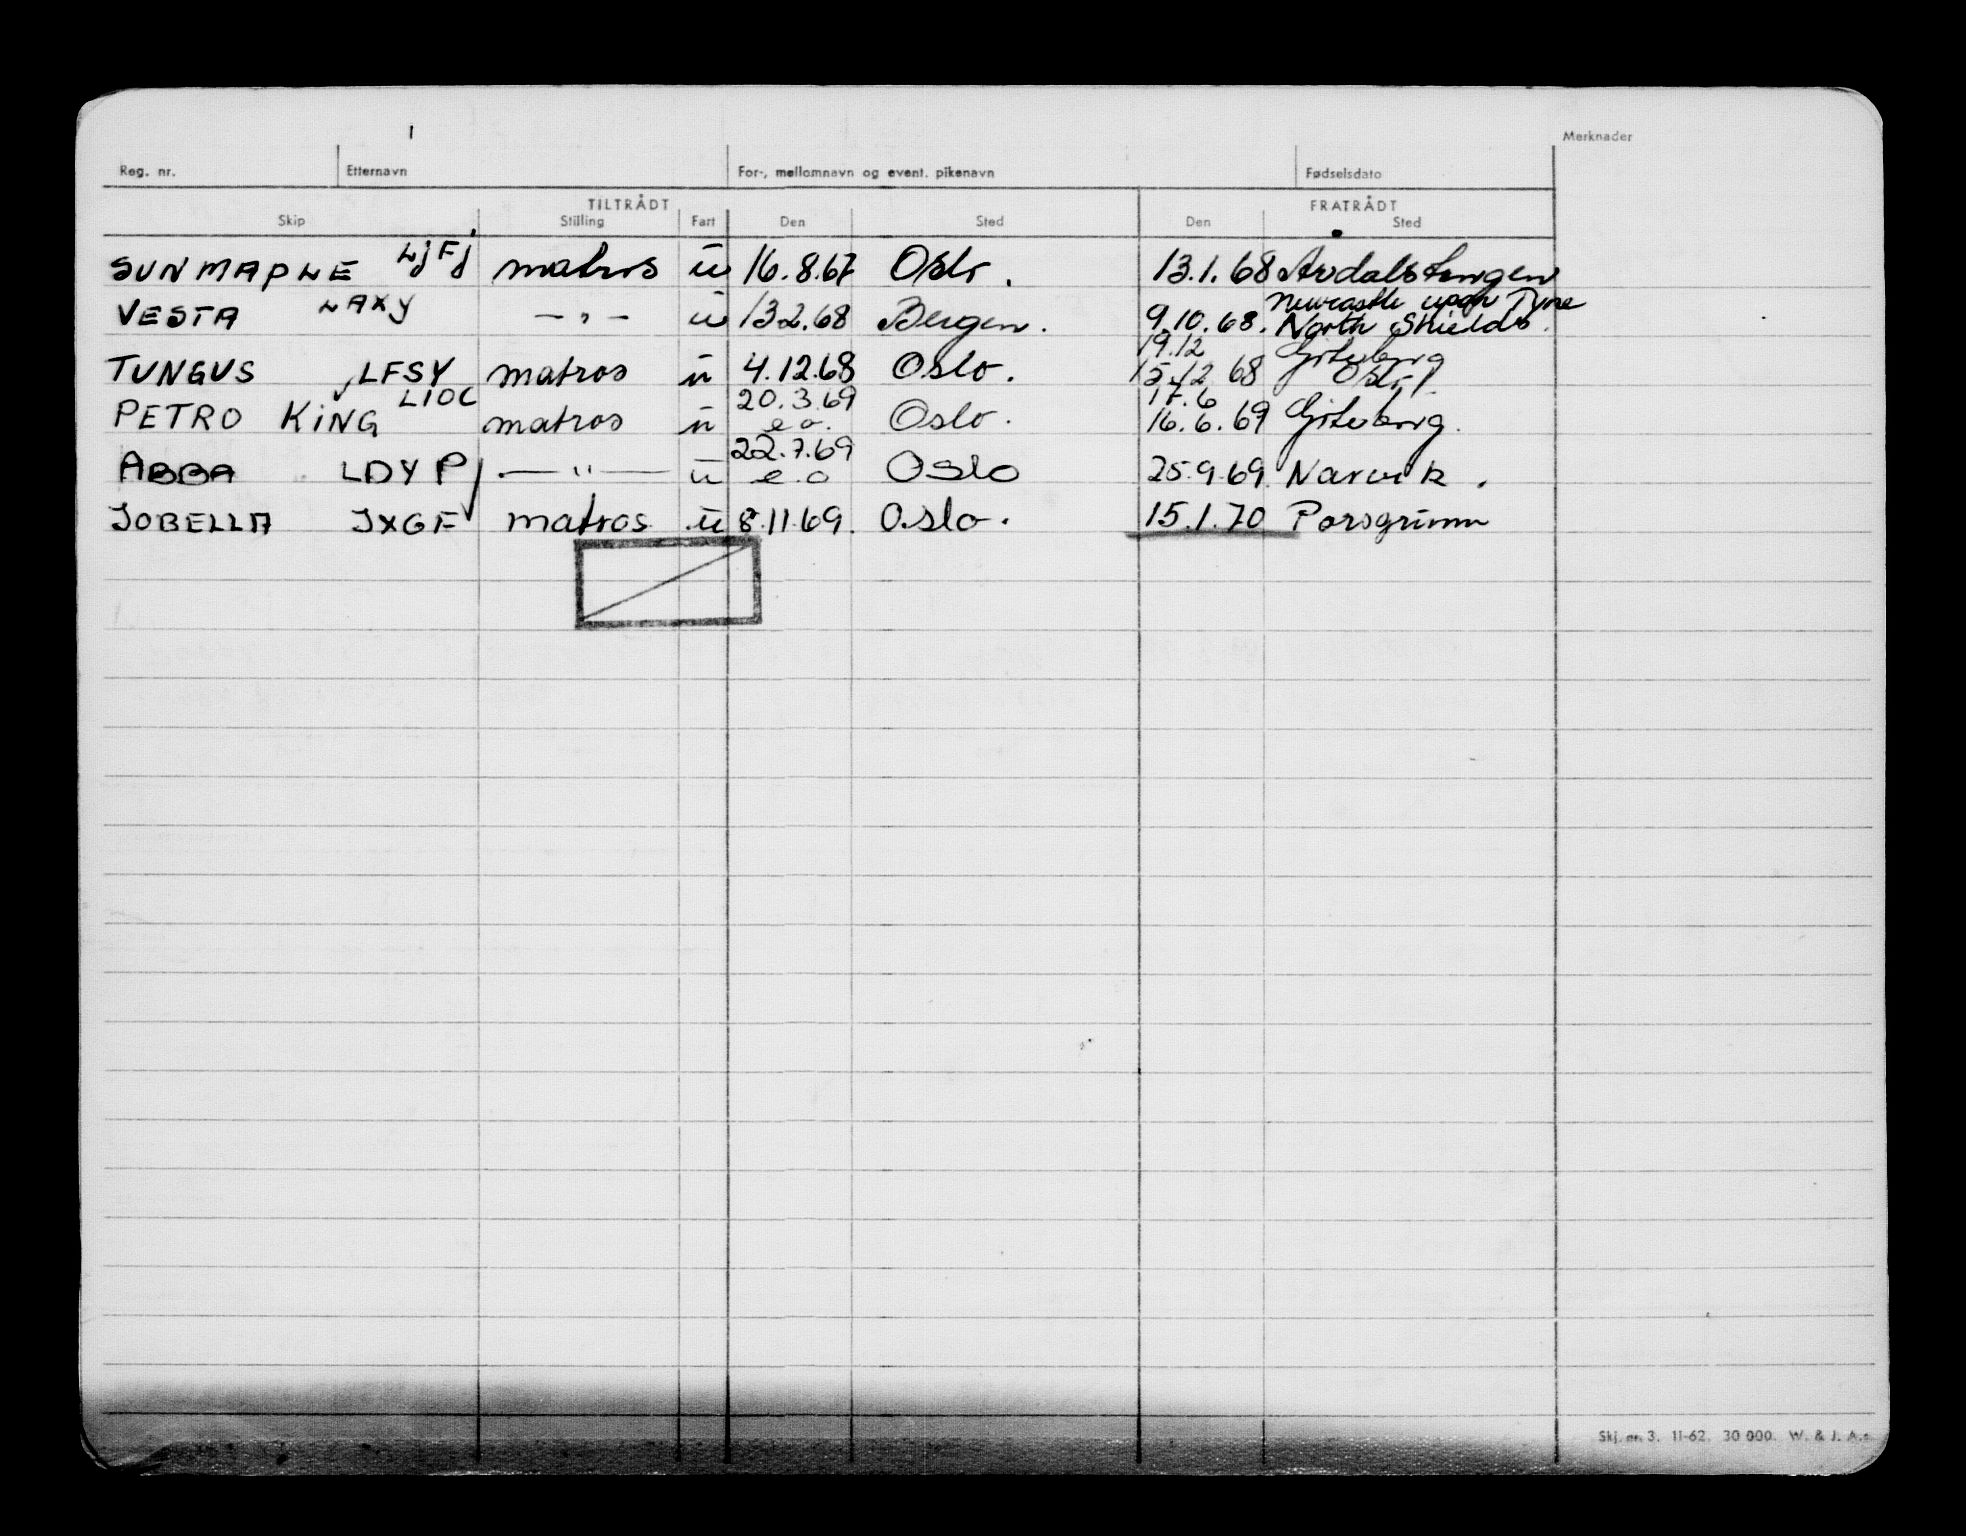 Merknader
Reg. nr. Etternavn For-, mellomnavn og event. pikenavn Fødselsdato
TILTRÅDT FRATRÅDT
Skip Stilling Fart Den Sted Den Sted
SUNMAPLE LJFJ matros u 16.8.67 Oslo. 13.1.68 Årdalstangen
VESTA LAXY — " — u 13.2.68 Bergen. 9.10.68. Newcastle upon Tyne North Shields.
19.12 Göteborg
TUNGUS LFSY matros u 4.12.68 Oslo. 15.12 68 Oslo
LIOC 20.3.69 17.6
PETRO KING matros u e.o. Oslo. 16.6.69 Göteborg.
22.7.69
ABBA LDYP — " — u e.o Oslo 25.9.69 Narvik.
JOBELLA JXGF matros u 8.11.69. Oslo. 15.1.70 Porsgrunn
Skj. nr. 3. 11-62. 30 000. W. & J. A.s